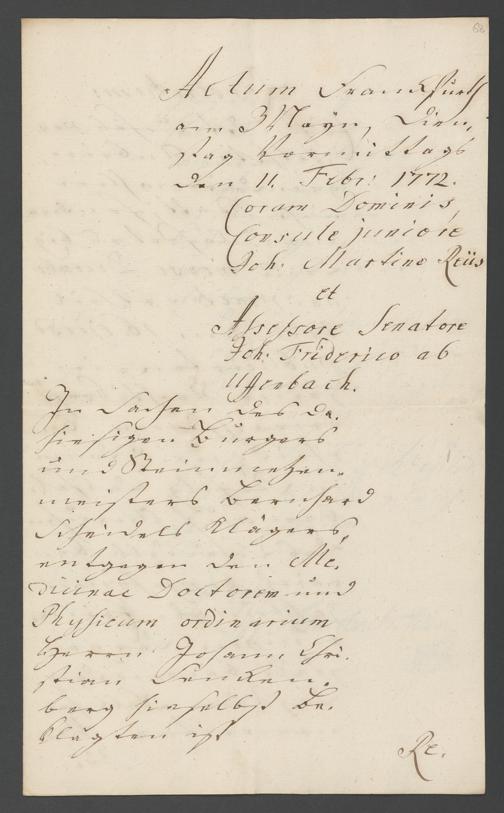 Actum Franckfurth
am Mayn, Dien,
stag Vormittags
den 11. Febr: 1772.
Coram Dominis,
Consule juniore
Joh. Martino Reüs
et
Assessore Senatore
Joh. Friderico ab
Uffenbach.
In Sachen des da,
hiesigen Burgers
und Steinmetzen,
meisters Bernhard
Scheidels Klägers,
entgegen den Me,
dicinae Doctorem und
Physicum ordinarium
Herrn Johann Chri,
stian Sencken,
berg hieselbst Be,
klagten ist
Re.